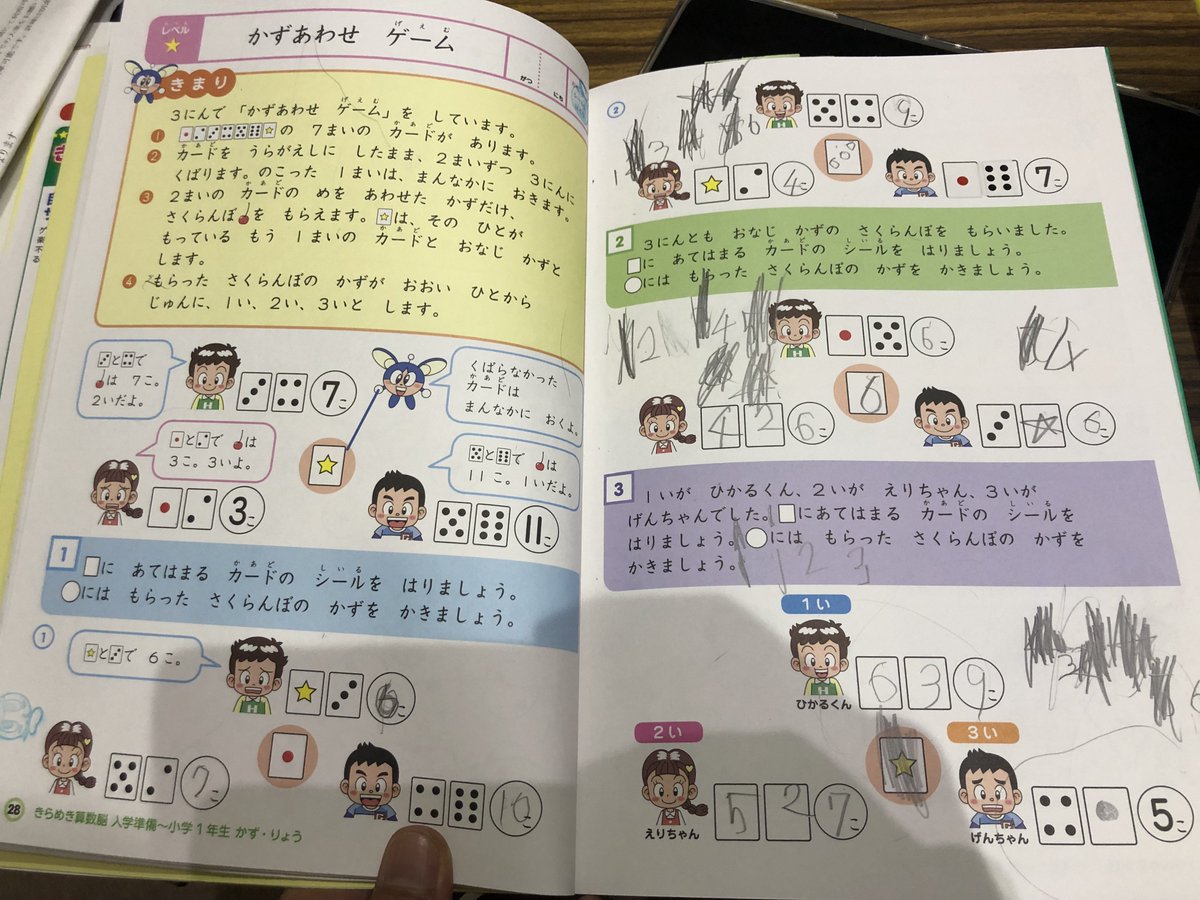 レベル
かずあわせ ゲーム
げえむ
がつ にち
きまり
3にんで 「かずあわせ ゲーム」を しています。
1 の 7まいの カードが あります。
2 カードを うらがえしに したまま、2まいずつ 3にんに
くばります。のこった 1まいは、まんなかに おきます。
3 2まいの カードの めを あわせた かずだけ、
さくらんぼを もらえます。は、その ひとが
もっている もう 1まいの カードと おなじ かずと
します。
4 もらった さくらんぼの かずが おおい ひとから
じゅんに、1い、2い、3いと します。
とで
は 7こ。
2いだよ。
7こ
くばらなかった
カードは
まんなかに おくよ。
とで は
3こ。3いよ。
3こ
とで は
11こ。1いだよ。
11こ
1 に あてはまる カードの シールを はりましょう。
には もらった さくらんぼの かずを かきましょう。
1
とで 6こ。
6こ
7こ
10こ
28
きらめき算数脳 入学準備〜小学1年生 かず・りょう
2
9こ
4こ
7こ
2 3にんとも おなじ かずの さくらんぼを もらいました。
に あてはまる カードの シールを はりましょう。
には もらった さくらんぼの かずを かきましょう。
6こ
6
4 2 6こ
6こ
3 1いが ひかるくん、2いが えりちゃん、3いが
げんちゃんでした。にあてはまる カードの シールを
はりましょう。には もらった さくらんぼの かずを
かきましょう。
1 2 3
1い
6 3 9こ
ひかるくん
2い
5 2 7こ
えりちゃん
3い
5こ
げんちゃん